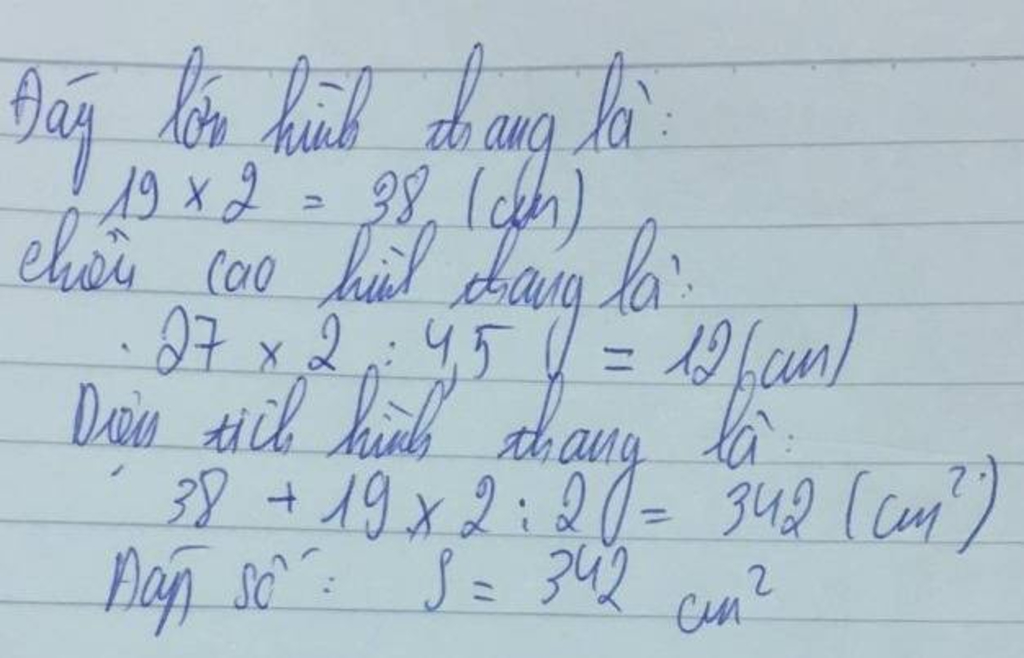 Đáy lớn hình thang là:
19 x 2 = 38 (cm)
chiều cao hình thang là:
27 x 2 : 4,5 = 12 (cm)
Diện tích hình thang là:
38 + 19 x 2 : 2 = 342 (cm²)
Đáp số: S = 342 cm²